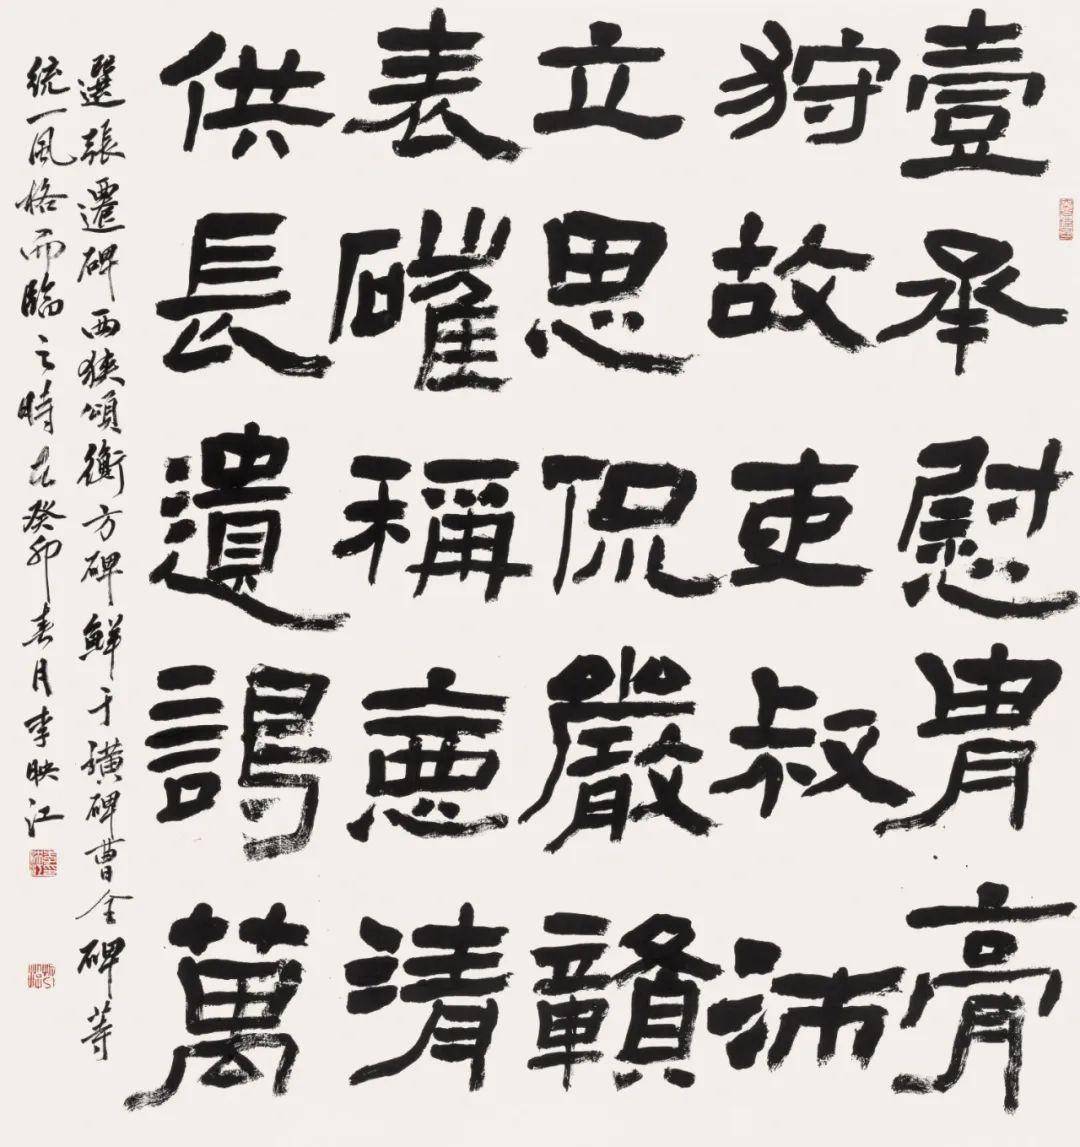 壹承慰胄膏
狩故吏叔沛
立思侃嚴贛
表磪稱清
供長遺萬
選張遷碑西狹頌衡方碑鮮于璜碑曹全碑等
統一風格而臨之時在癸卯春月李映江